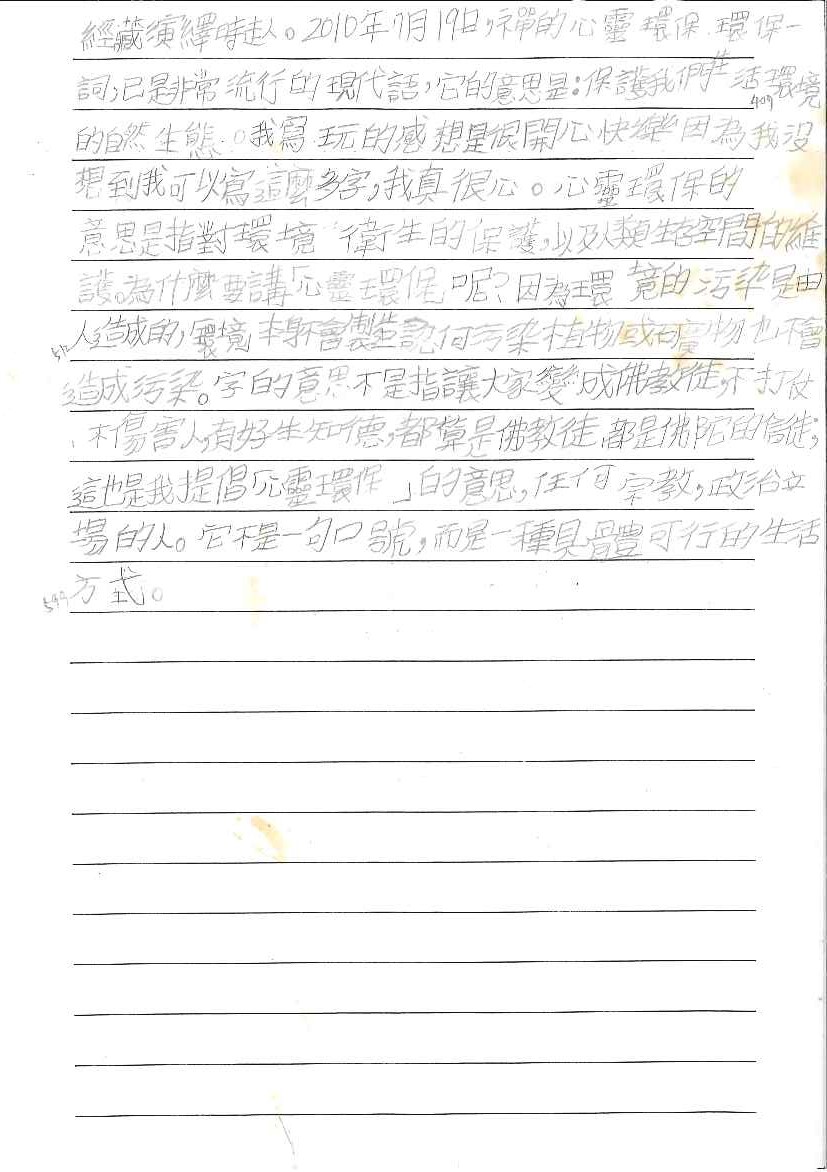 經藏演繹時赴人。2010年7月19日,禪的心靈環保.環保一
詞,已是非常流行的現代語,它的意思是:保護我們生活環境
409
的自然生態。我寫玩的感想是很開心快樂因為我沒
想到我可以寫這麼多字,我真很心。心靈環保的
意思是指對環境衛生的保護,以及人類生存空間的維
護。為什麼要講「心靈環保」呢?因為環境的污染是由
人造成的,環境本身不會製造認何污染植物或礦物也不會
造成污染。字的意思不是指讓大家變成佛教徒,不打仗
、不傷害人,有好生知德,都算是佛教徒,都是佛陀的信徒;
這也是我提倡「心靈環保」的意思,任何宗教,政治立
場的人。它不是一句口號,而是一種具體可行的生活
599
方式。